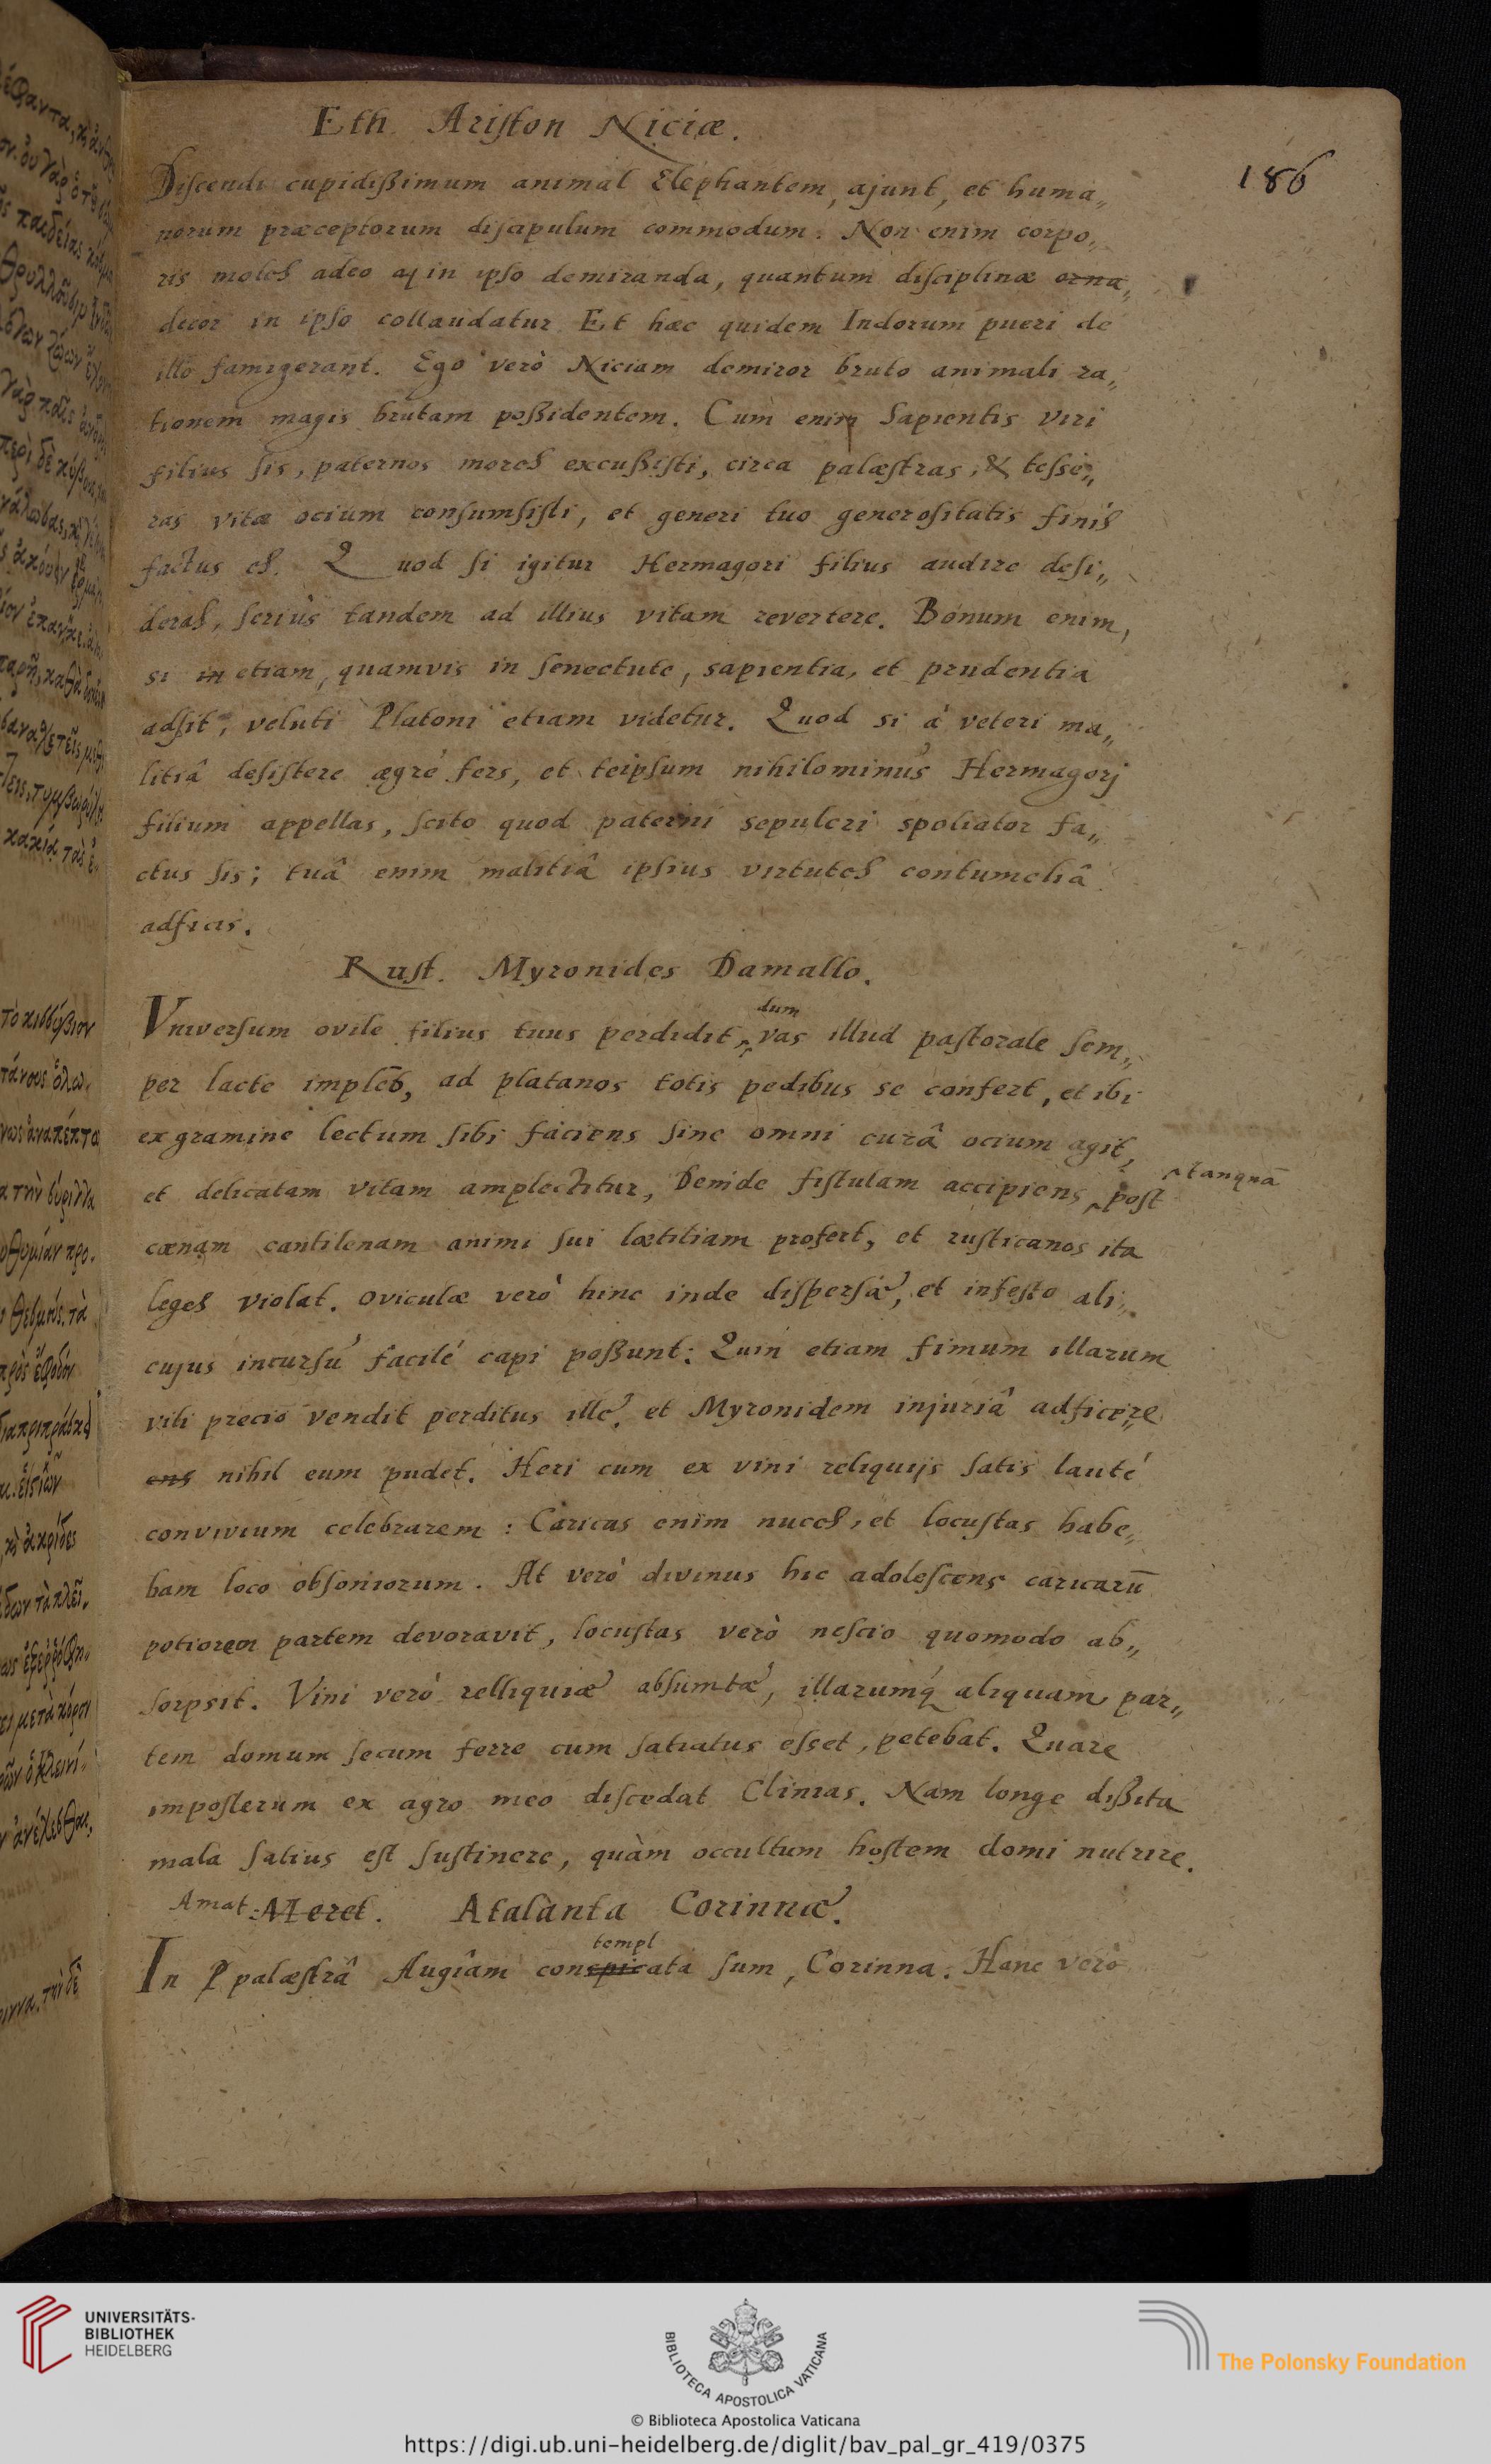 Eth. Ariston Niciæ.
186
Discendi cupidißimum animal Elephantem, ajunt, et huma„
norum præceptorum discipulum commodum. Non enim corpo„
ris moles adeo in ipso demiranda, quantum disciplinæ orna„
decor in ipso collaudatur. Et hæc quidem Indorum pueri de
illo famigerant. Ego verò Niciam demiror bruto animali ra„
tionem magis brutam poßidentem. Cum enim Sapientis Viri
filius sis, paternos mores excußisti, circa palæstras, & tesse„
ras vitæ ocium consumsisti, et generi tuo generositatis finis
factus es. Quod si igitur Hermagori filius audire desi„
deras, seriùs tandem ad illius vitam revertere. Bonum enim,
si in etiam, quamvis in senectute, sapientia, et prudentia
adsit, veluti Platoni etiam videtur. Quod si à veteri ma„
litiâ desistere ægré fers, et teipsum nihilominus Hermagorj
filium appellas, scito quod paterni sepulcri spoliator fa„
ctus sis; tuâ enim malitiâ ipsius virtutes contumeliâ
adficis.
Rust. Myronides Damallo.
dum
Vniversum ovile filius tuus perdidit, vas illud pastorale sem„
per lacte implēs, ad platanos totis pedibus se confert, et ibi
ex gramine lectum sibi faciens sine omni curâ ocium agit,
tanquā
et delicatam vitam amplectitur, Deinde fistulam accipiens post
cœnam cantilenam animi sui lætitiam profert, et rusticanos ita
leges violat. oviculæ verò hinc inde dispersæ, et infesto ali„
cujus incursu facilé capi poßunt: Quin etiam fimum illarum
vili precio vendit perditus ille, et Myronidem injuriâ adficere„
ens nihil eum pudet. Heri cum ex vini reliquijs satis lauté
convivium celebrarem: Caricas enim nuces, et locustas habe„
bam loco obsoniorum. At verò divinus hic adolescens caricarū
potiorem partem devoravit, locustas verò nescio quomodo ab„
sorpsit. Vini verò relliquiæ absumtæ, illarumq́ aliquam par„
tem domum secum ferre cum satiatus esset, petebat. Quare
imposterum ex agro meo discedat Clinias. Nam longe dißita
mala satius est sustinere, quàm occultum hostem domi nutrire.
Amat: Meret. Atalanta Corinnæ.
templ
In P palæstrâ Augîam conspicata sum, Corinna. Hanc verò
UNIVERSITÄTS-
BIBLIOTHEK
HEIDELBERG
BIBLIOTECA APOSTOLICA VATICANA
The Polonsky Foundation
© Biblioteca Apostolica Vaticana
https://digi.ub.uni-heidelberg.de/diglit/bav_pal_gr_419/0375